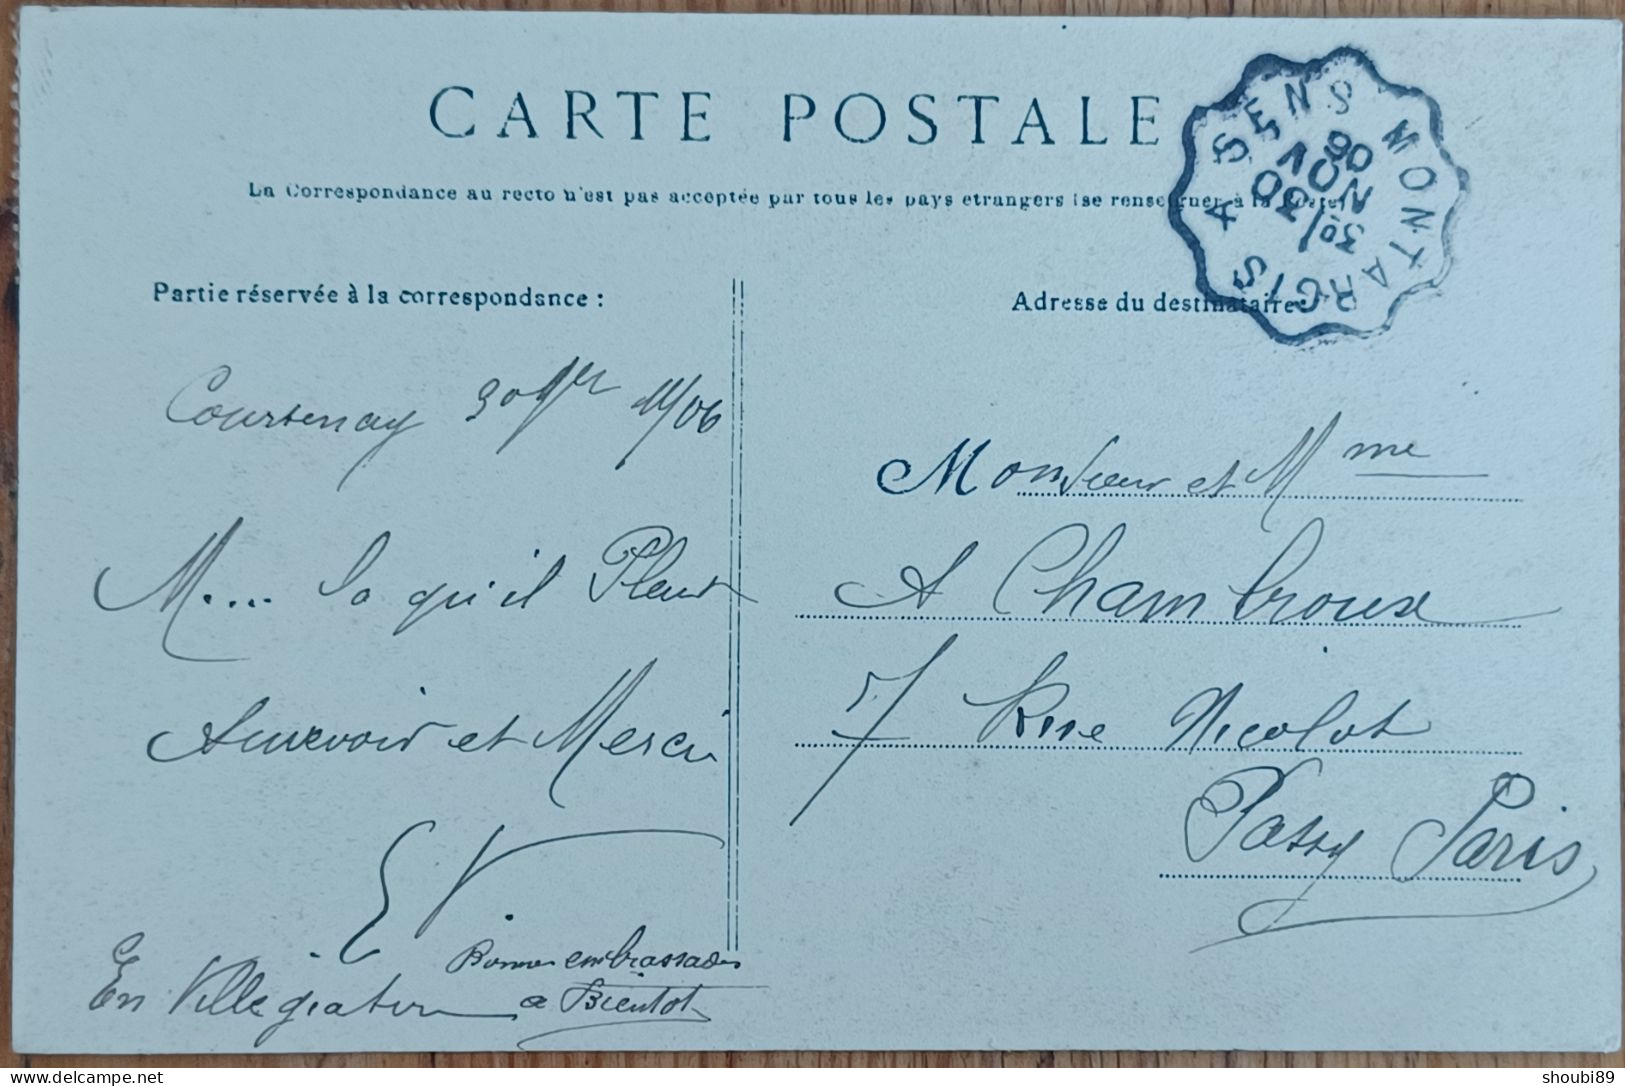 CARTE POSTALE
La Correspondance au recto n'est pas acceptée par tous les pays etrangers (se renseigner à la Poste)
MONTARGIS A SENS
3º/ 30
NOV
06
Partie réservée à la correspondance :
Courtenay 30 9bre 11/06
M.... la qu'il Pleut
Aurevoir et Merci
EV
Bonnes embrassades
En Villegiature a Bientot
Adresse du destinataire:
Monsieur et Mme
A Chambroux
7 Rue Nicolot
Passy Paris
delcampe.net
shoubi89